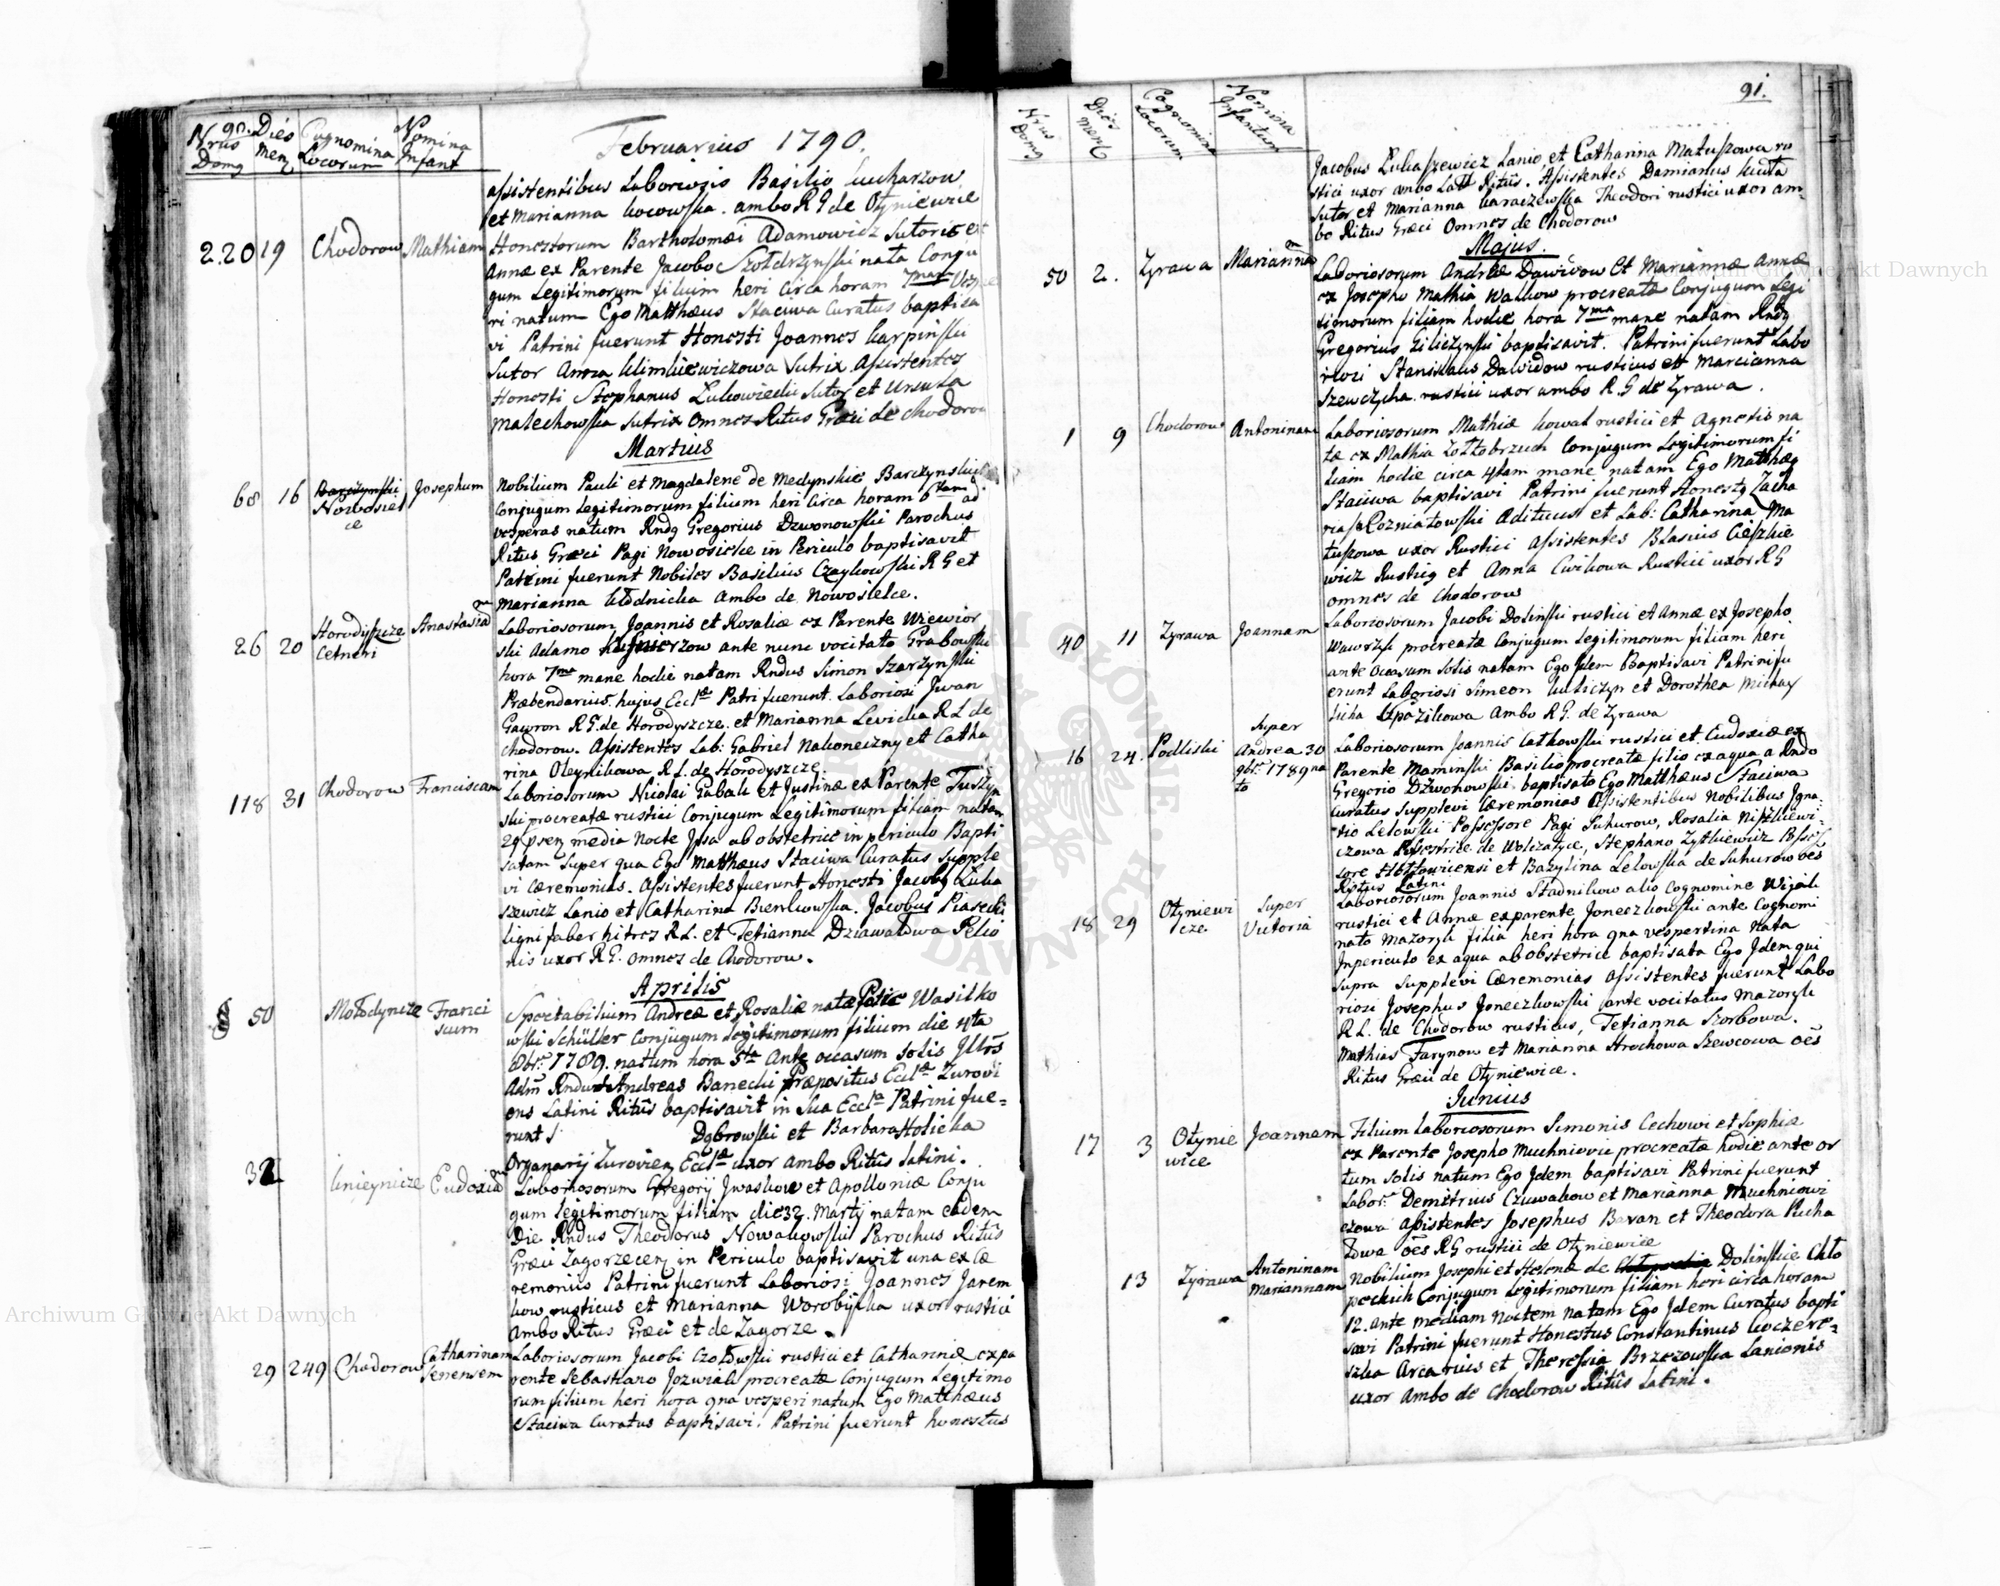 90.
Nrus Domq
Dies Menq
Cognomina Locorum
Nomina Infant
Februarius 1790.
assistentibus Laboriosis Basilio Kucharzow
et Marianna Kocowska. ambo R G de Otyniewice
2.20 19 Chodorow Mathiam
Honestorum Bartholomæi Adamowicz Sutoris et
Annæ ex Parente Jacobo Szołdrzynski nata Conju
gum Legitimorum filium heri circa horam 7mam Vespe
ri natum Ego Matthæus Staciwa Curatus baptisa
vi Patrini fuerunt Honesti Joannes Karpinski
Sutor Anna Klimkiewiczowa Sutrix Assistentes
Honesti Stephanus Lukowiecki Sutor et Ursula
Malechowska Sutrix Omnes Ritus Græci de Chodorow
Martius
68 16 Nowosiel ce Josephum
Nobilium Pauli et Magdalene de Medynskie Barczynskich
Conjugum Legitimorum filium heri Circa horam 6tam ad
vesperas natum Rndq Gregorius Dzwonowski Parochus
Ritus Græci Pagi Nowosielce in Periculo baptisavit
Patrini fuerunt Nobiles Basilius Czaykowski R G et
Marianna Kłodnicka Ambo de Nowosielce.
26 20 Horodyszcze Cetneri Anastasiam
Laboriosorum Joannis et Rosaliæ ex Parente Wiewior
ski Adamo ante nunc vocitato Grabowski
hora 7ma mane hodie natam Rndus Simon Szarzynski
Præbendarius hujus Ecclæ Patri fuerunt Laboriosi Iwan
Gawron R G. de Horodyszcze et Marianna Levicka R L de
Chodorow. Assistentes Lab: Gabriel Nakoneczny et Catha
rina Oleynikowa R L. de Horodyszcze
118 31 Chodorow Franciscam
Laboriosorum Nicolai Gabali et Justinæ ex Parente Tuszyn
ski procreatæ rustici Conjugum Legitimorum filiam natam
29 psen media Nocte Ipsa ab obstetrice in periculo Bapti
satam Super qua Ego Matthæus Staciwa Curatus Supple
vi Cæremonias. Assistentes fuerunt Honesti Jacobq Luka
szewicz Lanio et Catharina Bienkowska. Jacobus Piasecki
ligni faber hi tres R L. et Tetianna Dziawałowa Pelio
nis uxor R G. omnes de Chodorow.
Aprilis
50 Mołodyncze Franci scum
Spectabilium Andreæ et Rosaliæ natæ Wasilko
wski Schüller Conjugum Legitimorum filium die 4ta
8br: 1789. natum hora 5ta Ante occasum Solis Illrs
Adm Rndus Andreas Banecki Præpositus Ecclæ Zurovi
ens Latini Ritûs baptisavit in Sua Eccla Patrini fue=
runt Dąbrowski et Barbara Holicka
Organarij Zurovien Ecclæ uxor ambo Ritûs Latini.
32 Knieynicze Eudoxiam
Laboriosorum Gregorij Iwaskow et Apolloniæ Conju
gum Legitimorum filiam die 32. Martij natam eâdem
Die Rndus Theodorus Nowakowski Parochus Ritûs
Græci Zagorzecen in Periculo baptisavit una ex Cæ
remoniis Patrini fuerunt Laboriosi Joannes Jarem
kow rusticus et Marianna Worobijcka uxor rustici
Ambo Ritus Græci et de Zagorze.
29 249 Chodorow Catharinam Senensem
Laboriosorum Jacobi Czołowski rustici et Catharinæ ex pa
rente Sebastiano Jozwiak procreatæ Conjugum Legitimo
rum filium heri hora 9na vesperi natum Ego Matthæus
Staciwa Curatus baptisavi. Patrini fuerunt honestus
91.
Nrus Domq
Dies Mens
Cognomina Locorum
Nomina Infantum
Jacobus Lukaszewicz Lanio et Catharina Matuszowa ru
stici uxor ambo Latt Ritûs. Assistentes Damianus Kuta
Sutor et Marianna Karaczewska Theodori rustici uxor am-
bo Ritus Græci Omnes de Chodorow
Majus.
50 2. Zyrawa Mariannam
Laboriosorum Andreæ Dawidow et Mariannæ Annæ
ex Josepho Mathia Walkow procreatæ Conjugum Legi
timorum filiam hodie hora 7ma mane natam Rndq
Gregorius Kiliczynski baptisavit. Patrini fuerunt Labo
riosi Stanislaus Dawidow rusticus et Marcianna
Szewczycha rustici uxor ambo R. G de Zyrawa.
1 9 Chodorow Antoninam
Laboriosorum Mathiæ Kowal rustici et Agnetis na
tæ ex Mathia Zołtobrzuch Conjugum Legitimorum fi
liam hodie circa 4tam mane natam Ego Matthæq
Staciwa baptisavi Patrini fuerunt Honestq Zacha
rias Rozniatowski Adituus et Lab: Catharina Ma
tuszowa uxor Rustici Assistentes Blasius Cieszkie
wicz Rusticq et Anna Cwikowa Rustici uxor R G
omnes de Chodorow
40 11 Zyrawa Joannam
Laboriosorum Jacobi Dolinski rustici et Annæ ex Josepho
Wawrzyk procreatæ Conjugum Legitimorum filiam heri
ante Occasum Solis natam Ego Idem Baptisavi Patrini fu
erunt Laboriosi Simeon Kuliczyn et Dorothea Michay
licha Szpazikowa Ambo R G. de Zyrawa
16 24. Podliski Super Andrea 30 9br: 1789 na to
Laboriosorum Joannis Catkowski rustici et Eudoxiæ ex
Parente Maminski Basilio procreatæ filio ex aqua a Rndo
Gregorio Dzwonowski baptisato Ego Matthæus Staciwa
Curatus Supplevi Cæremonias Assistentibus Nobilibus Igna-
tio Lelowski Possessore Pagi Suhurow, Rosalia Niszkiewi-
czowa Possestrice de Wolczatycze, Stephano Zytkiewicz Posses
sore Hołszowiensi et Bazylina Lelowska de Suhurow oês
Ritus Latini
18 29 Otyniewi cze Super Victoria
Laboriosorum Joannis Stadnikow alio Cognomine Wijak
rustici et Annæ ex parente Joneczkowski ante Cognomi
nato Mazoryk filia heri hora 9na vespertina Nata
In periculo ex aqua ab obstetrice baptisata Ego Idem qui
Supra Supplevi Cæremonias Assistentes fuerunt Labo
riosi Josephus Joneczkowski ante vocitatus Mazoryk
R L. de Chodorow rusticus, Tetianna Szorbowa.
Mathias Farynow et Marianna Hrochowa Szewcowa oês
Ritus Græci de Otyniewice.
Junius
17 3 Otynie wice Joannem
Filium Laboriosorum Simonis Cechowi et Sophiæ
ex Parente Josepho Muchniovie procreatæ hodie ante or
tum Solis natum Ego Idem baptisavi Patrini fuerunt
Labor: Demitrius Czuwakow et Marianna Muchniowi
czowa Assistentes Josephus Baran et Theodora Pucha
łowa oês R G rustici de Otyniewice
13 Zyrawa Antoninam Mariannam
Nobilium Josephi et Helenæ de Dolinskie Chło
peckich Conjugum Legitimorum filiam heri circa horam
12. ante mediam Noctem Natam Ego Idem Curatus bapti
savi Patrini fuerunt Honestus Constantinus Koczere=
szka Arcarius et Theressia Brzezowska Lanionis
uxor Ambo de Chodorow Ritûs Latini.
Archiwum Główne Akt Dawnych
Archiwum Główne Akt Dawnych
ARCHIWUM GŁÓWNE AKT DAWNYCH